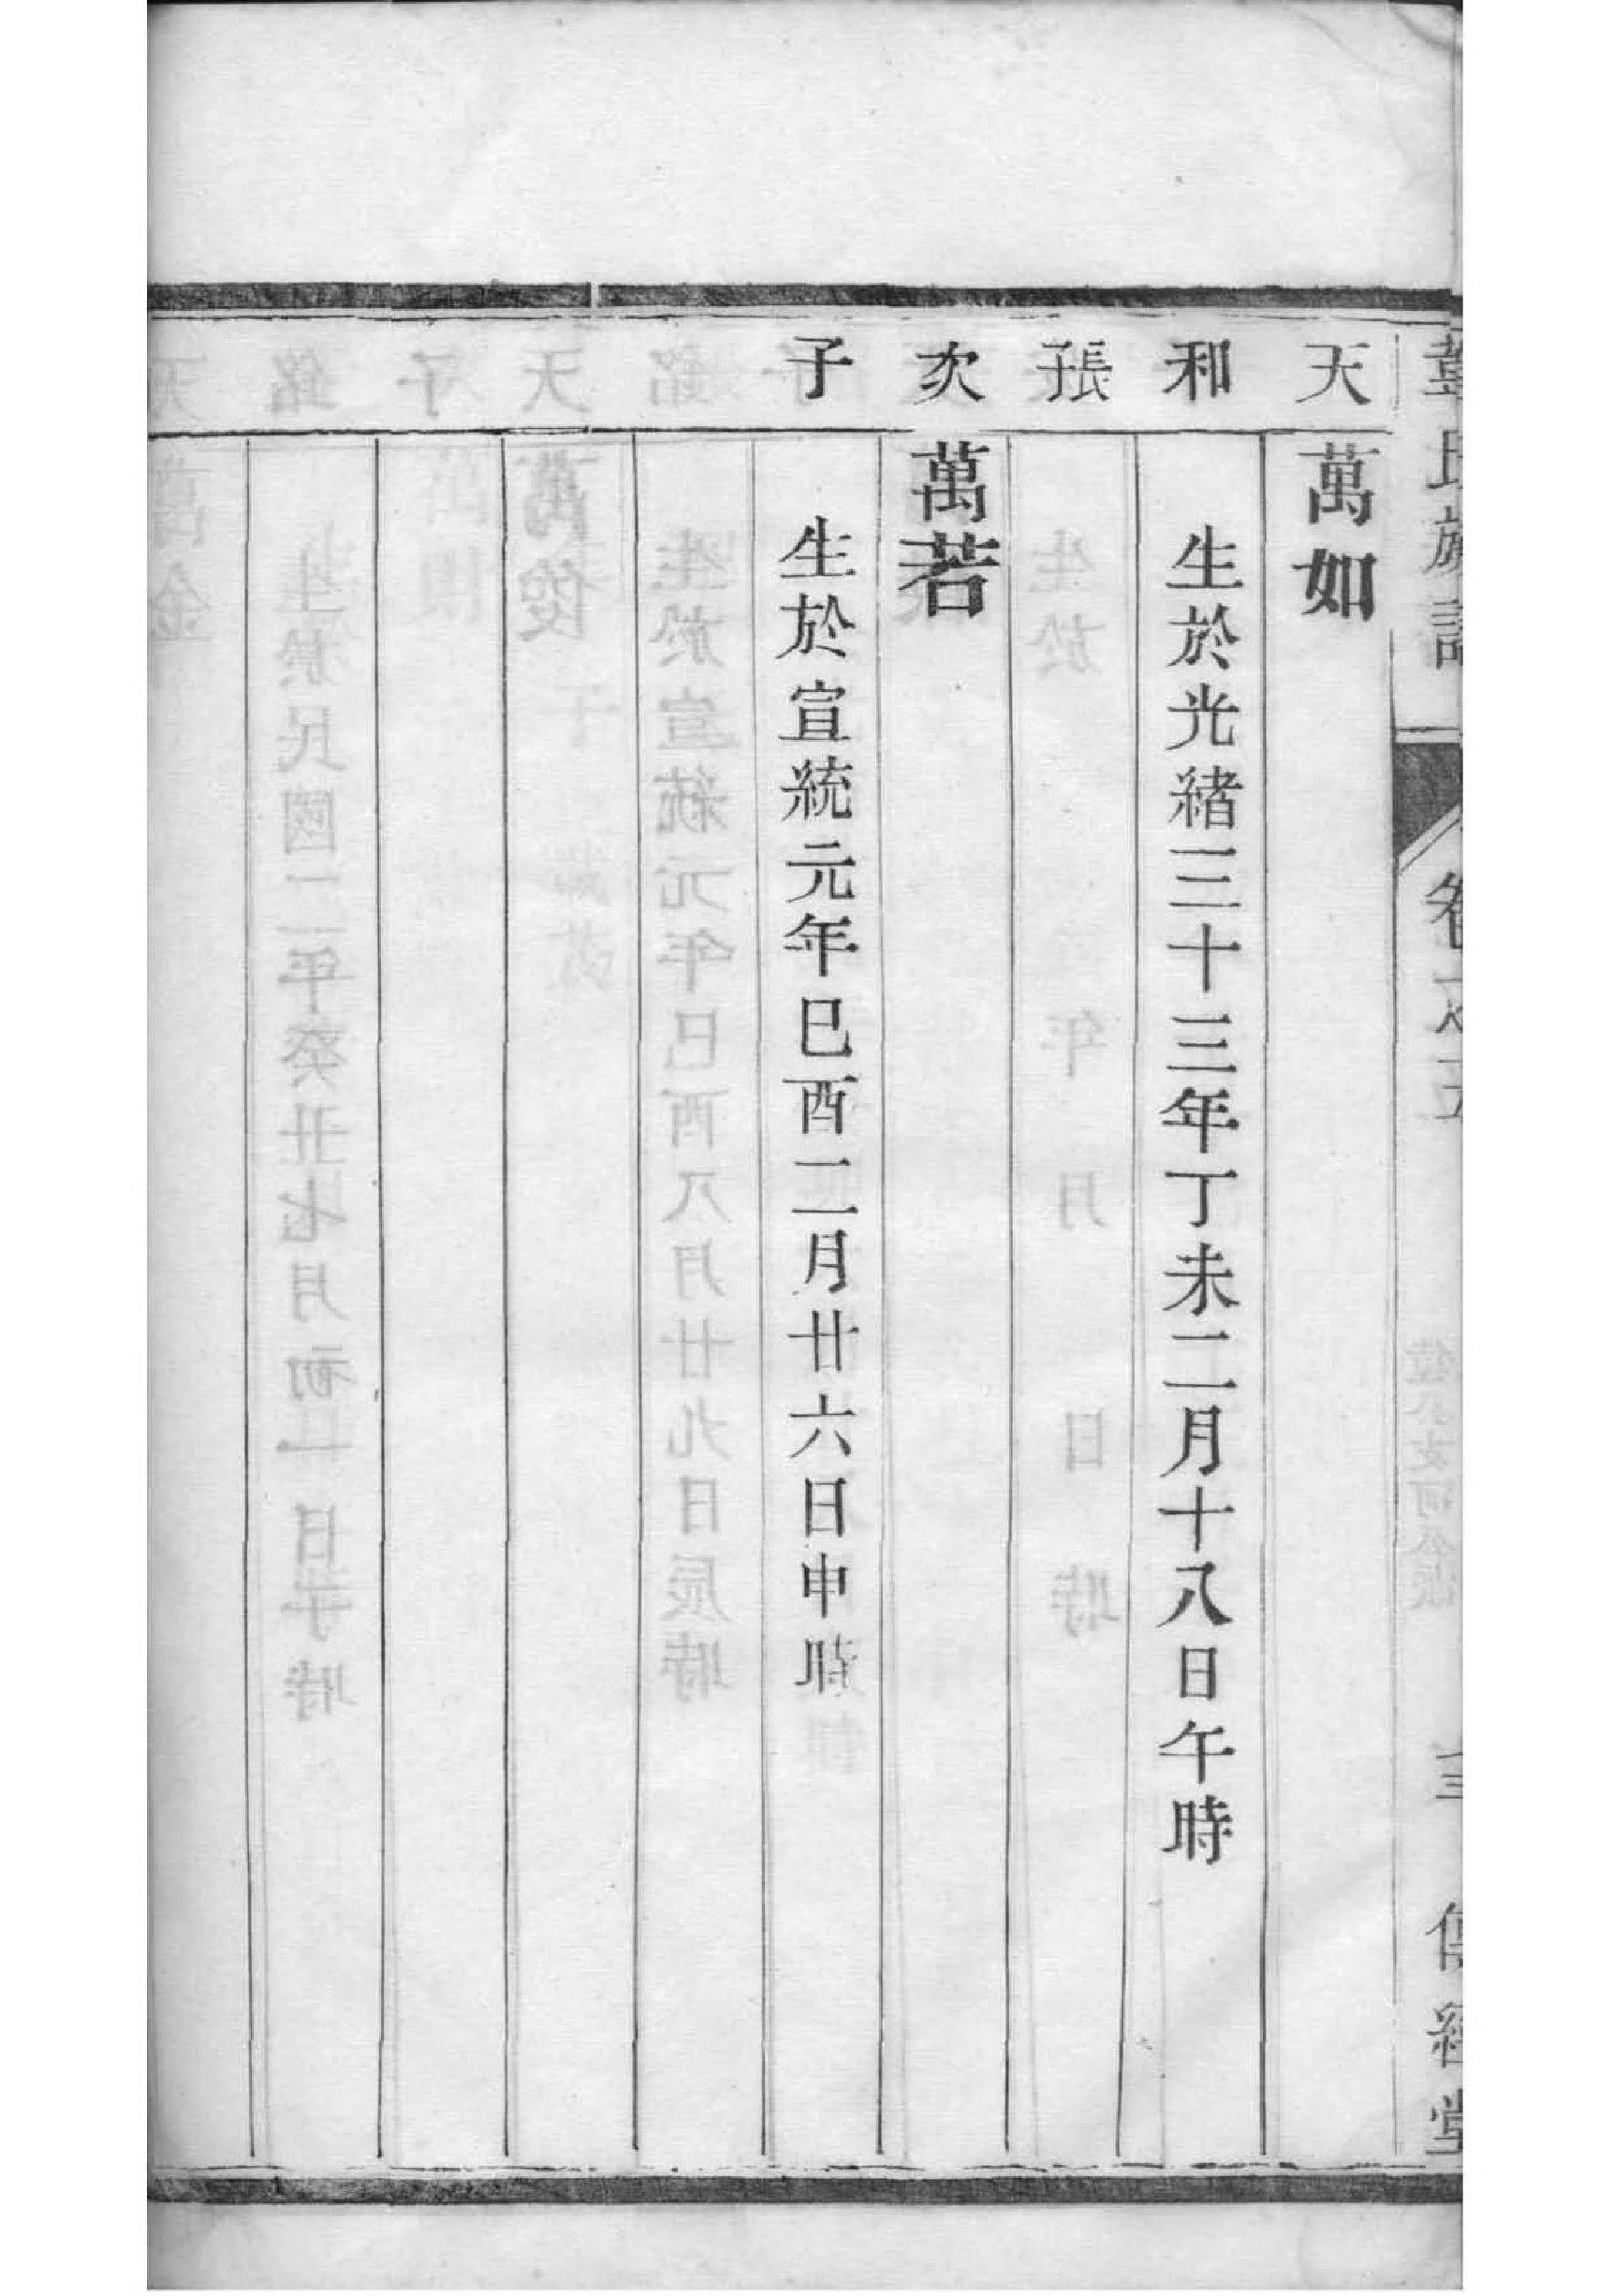 氏族譜
卷
傳經堂
天 萬如
和 生於光緒三十三年丁未二月十八日午時
張
次 萬若
子 生於宣統元年巳酉二月廿六日申時